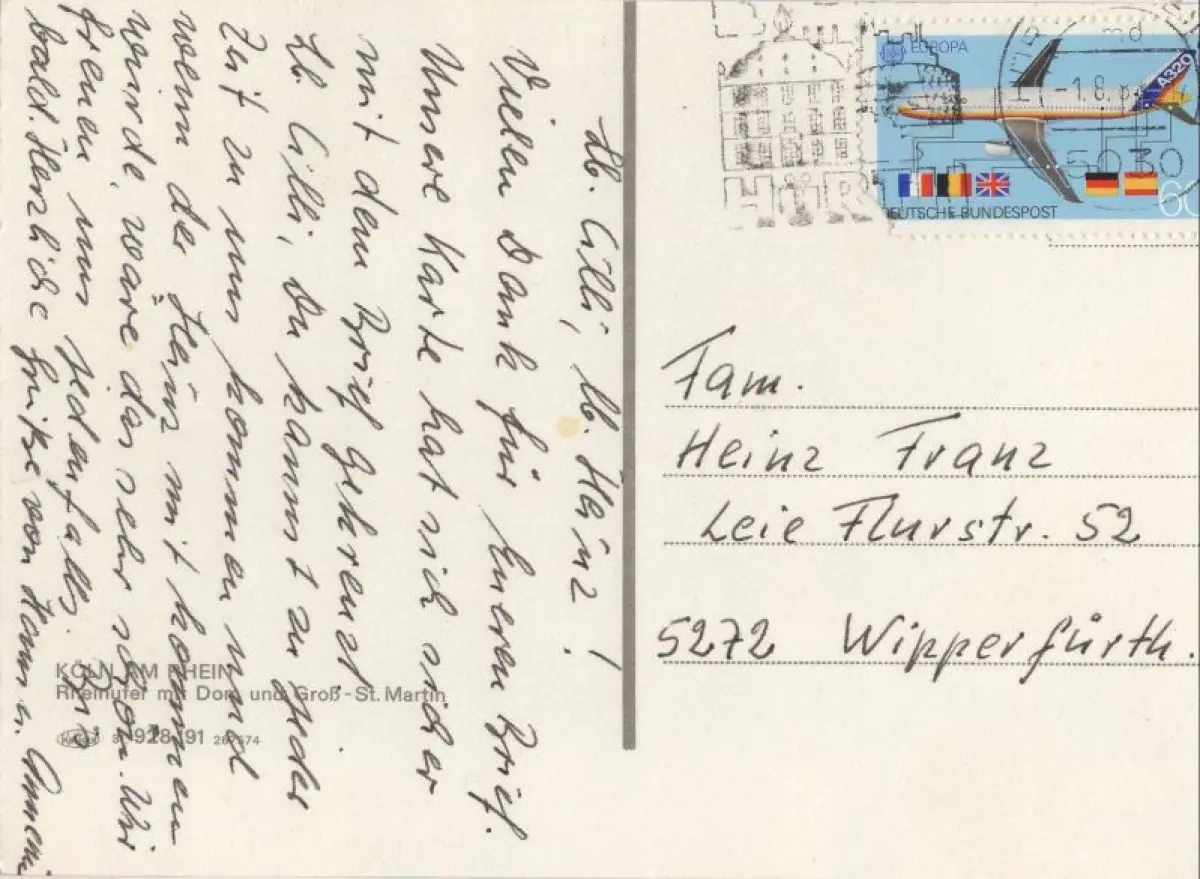 Lb. Cilli, lb. Häinz!
Vielen Dank für Eueren Brief.
Unsere Karte hat sich sicher
mit dem Brief gekreuzt.
Lb. Cilli, Du kannst zu jeder
Zeit zu uns kommen und
wenn der Häinz mit kommen
würde, wäre das sehr schön. Wir
freuen uns jedenfalls. Bis
bald. Herzliche Grüße von Hann u. Annemi
KÖLN AM RHEIN
Rheinufer mit Dom und Groß-St. Martin
928 91
EUROPA
A320
-1.8.
5030
60
DEUTSCHE BUNDESPOST
HÜR
Fam.
Heinz Franz
Leie Flurstr. 52
5272 Wipperfürth.